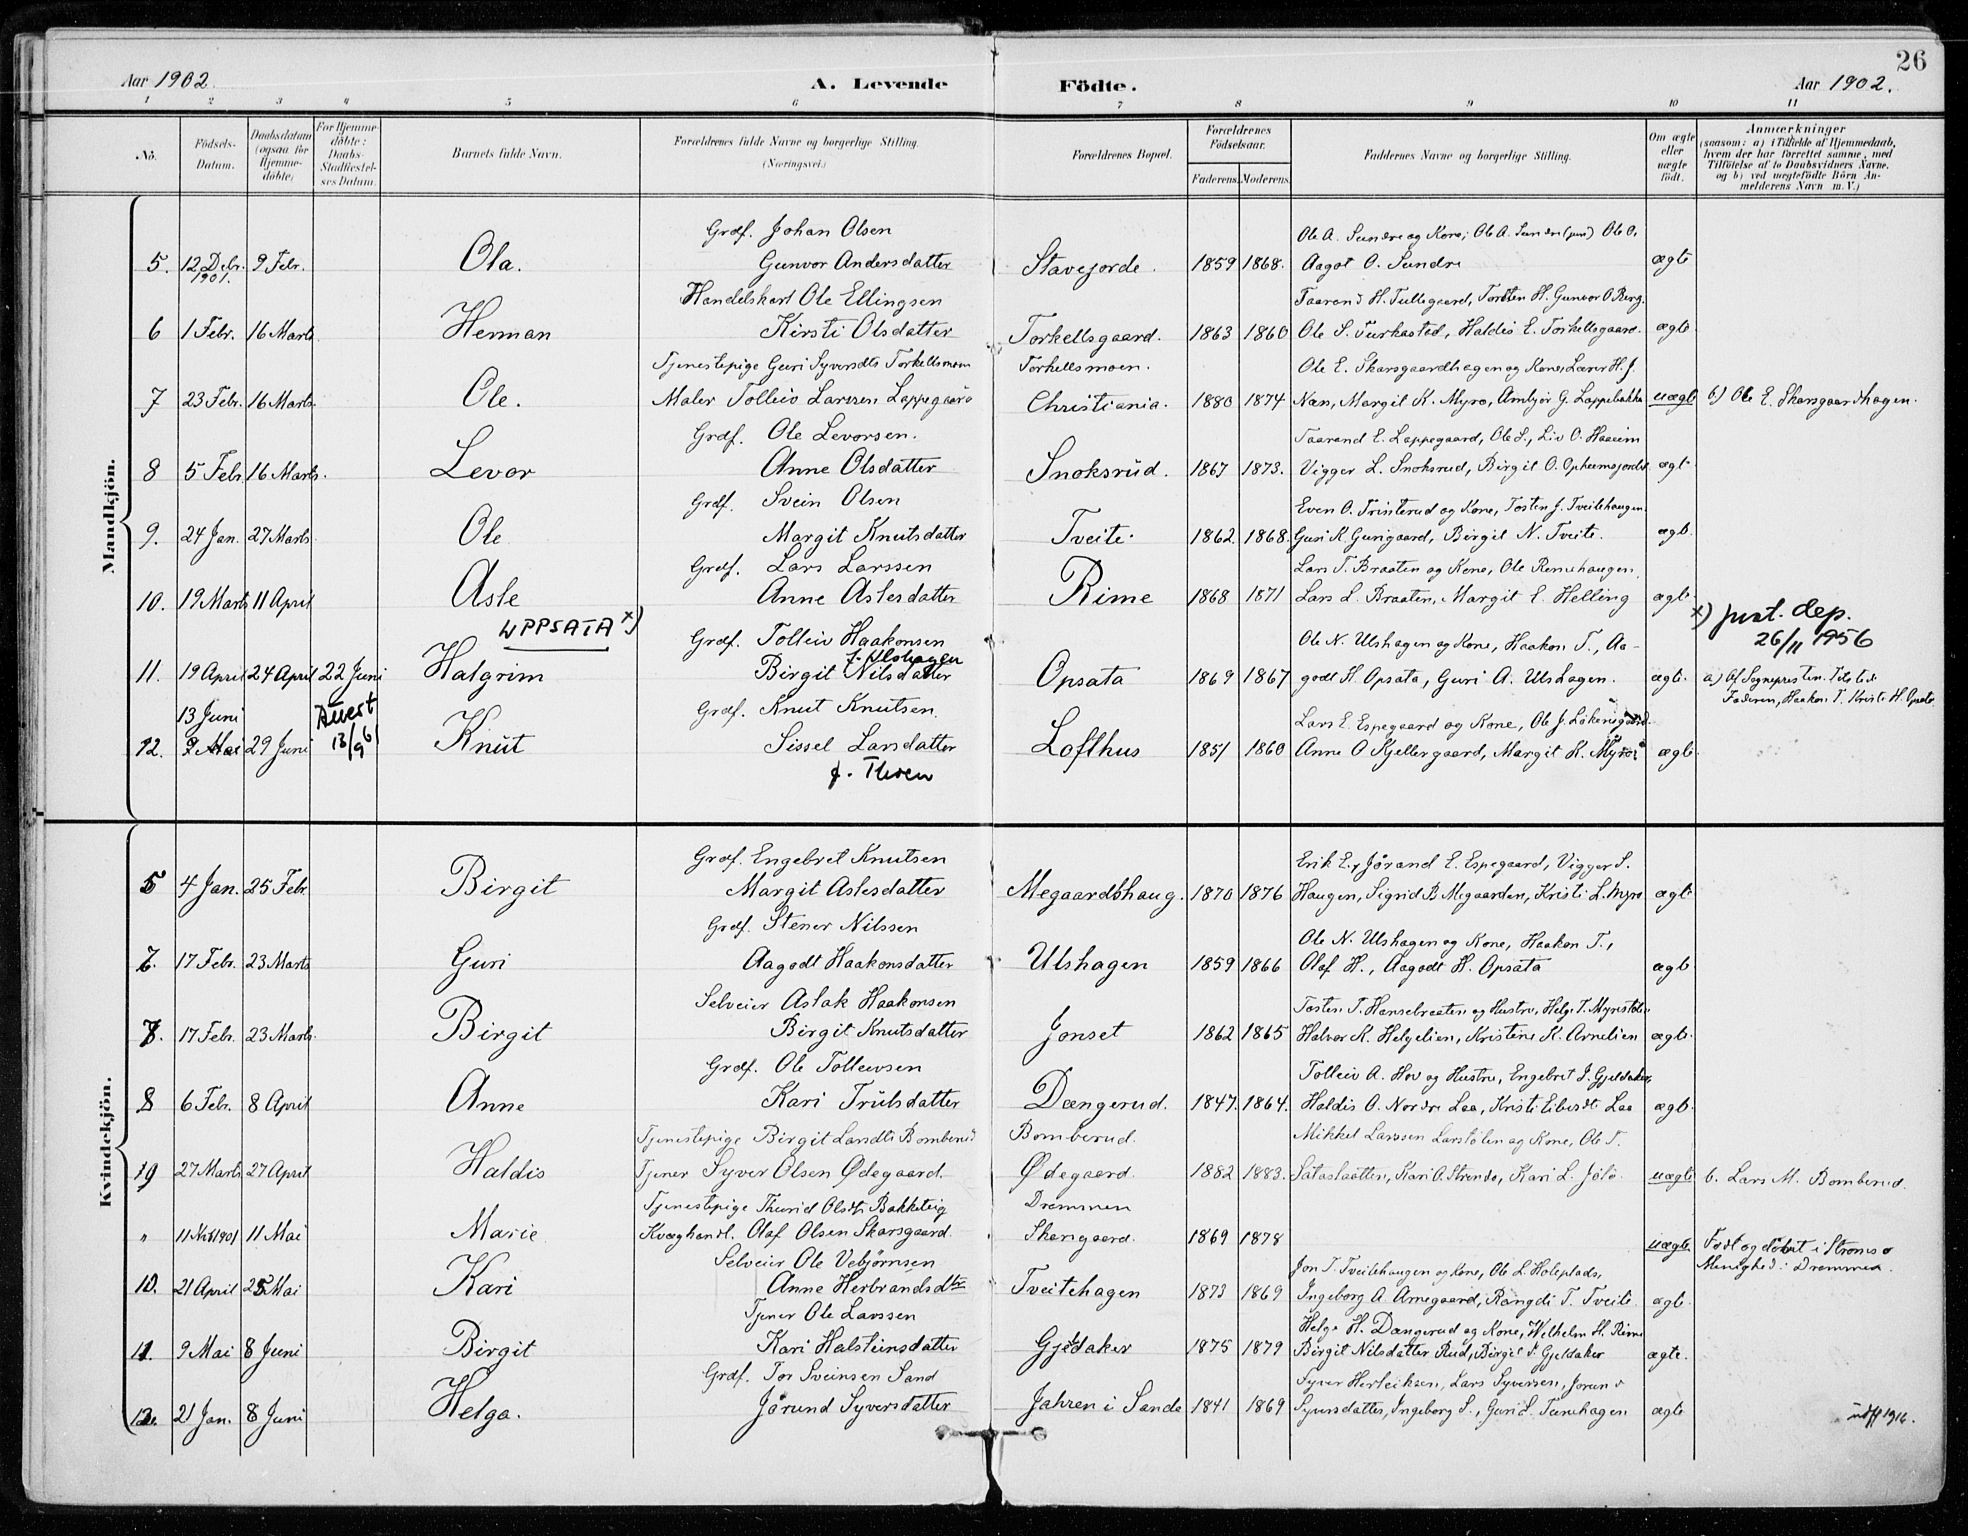 26
Aar 1902. A. Levende Födte. Aar 1902.
1 2 3 4 5 6 7 8 9 10 11
No.
Födsels-Datum.
Daabsdatum (ogsaa for Hjemmedöbte)
For Hjemmedöbte: Daabs-Stadfæstelses Datum.
Barnets fulde Navn.
Forældrenes fulde Navne og borgerlige Stilling. (Næringsvei.)
Forældrenes Bopæl.
Forældrenes Födselsaar.
Faderens. Moderens.
Faddernes Navne og borgerlige Stilling.
Om ægte eller uægte födt.
Anmærkninger
(saasom: a) i Tilfælde af Hjemmedaab, hvem der har forrettet samme, med Tilföielse af to Daabsvidners Navne, og b) ved uægtefödte Börn Anmelderens Navn m. V.)
Mandkjön.
Grdf. Johan Olsen Ole A. Sundre og Kone, Ole A. Sundre (jun) Ole O.
5. 12 Debr. 1901. 9 Febr. Ola. Gunvor Andersdatter Stavejorde. 1859 1868. Aagot O. Sundre ægte
Handelskart Ole Ellingsen Taarand H. Tullegaard, Torsten H. Gunvor O. Berg.
6 1 Febr. 16 Marts Herman Kirsti Olsdatter Torkellsgaard. 1863 1860 Ole S. Turkastad, Haldis E. Torkellsgaard. ægte
Tjenestepige Guri Syversdtr Torkellsmoen Torkellsmoen. Ole E. Skarsgaardhagen og Kone, Lærer H. J.
7 23 Febr. 16 Marts. Ole. Maler Tolleiv Larssen Lappegaard Christiania. 1880 1874 Næn, Margit K. Myro, Ambjør G. Lappebakke uægte b) Ole E. Skarsgaardhagen.
Grdf. Ole Levorsen. Taarand E. Lappegaard, Ole S., Liv O. Haaeim
8 5 Febr. 16 Marts. Levor Anne Olsdatter Snoksrud. 1867 1873. Vigger L. Snoksrud, Birgit O. Opheimsjorde ægt.
Grdf. Svein Olsen Even O. Tristerud og Kone, Tosten J. Tveitehaugen
9. 24 Jan. 27 Marts Ole Margit Knutsdatter Tveite. 1862. 1868. Guri K. Gurigaard, Birgit N. Tveite. ægt.
Grdf. Lars Larssen Lars T. Braaten og Kone, Ole Rimehaugen,
10. 19 Marts 11 April Asle Anne Aslesdatter Rime 1868 1871 Lars L. Braaten, Margit E. Helling ægte
UPPSATA x) x) Just. dep. 26/11 1956
Grdf. Tolleiv Haakonsen Ole N. Ulshagen og Kone, Haakon T., Aa-
f. Ulshagen
11. 19 April 24 April 22 Juni Halgrim Birgit Nilsdatter Opsata 1869 1867 godt H. Opsata, Guri A. Ulshagen. ægte. a) Af Sognepresten. Tilstede Faderen, Haakon T. Kristi H. Opsata
13 Juni Attest 13/9 61 Grdf. Knut Knutsen. Lars E. Espegaard og Kone, Ole J. Løkensgaard
12. 9 Mai 29 Juni Knut Sissel Larsdatter Lofthus 1851 1860 Anne O Kjellergaard, Margit K. Myro ægte
f. Thoen
Kvindekjön.
Grdf. Engebret Knutsen Erik E., Jørand E. Espegaard, Vigger S.
5 4 Jan. 25 Febr. Birgit Margit Aslesdatter Megaardshaug. 1870 1876 Haugen, Sigrid B Megaarden, Kristi L. Myro ægte
Grdf. Stener Nilssen Ole N. Ulshagen og Kone, Haakon T.,
6. 17 Febr. 23 Marts Guri Aagodt Haakonsdatter Ulshagen 1859 1866 Olaf H., Aagodt H. Opsata ægte
Selveier Aslak Haakonsen Tosten T. Hansebraaten og Hustru, Helge T. Myrstølen
7. 17 Febr. 23 Marts. Birgit Birgit Knutsdatter Jonset 1862 1865 Halvor K. Helgelien, Kristine K. Arnelien ægte.
Grdf. Ole Tollevsen Tolleiv A. Hov og Hustru, Engebret J. Gjeldaker,
8 6 Febr. 8 April Anne Kari Trulsdatter Dængerud. 1847. 1864. Haldis O. Nordre Laa, Kristi Eibersdt. Laa ægte.
Tjenestepige Birgit Larsdtr Bomberud Bomberud. Mikkel Larssen Larstølen og Kone, Ole T.
9 27 Marts 27 April Haldis Tjener Syver Olsen Ødegaard. Ødegaard. 1882 1883. Sataslaatten, Kari O. Strendo, Kari L. Jolo uægte b. Lars M. Bomberud.
Tjenestepige Thurid Olsdtr Bakketeig Drammen
" 11 Nov 1901 11 Mai Marie Kvæghandl. Olaf Olsen Skarsgaard. Skarsgaard. 1869 1878 uægte. Født og døbt i Strømsø Menighed i Drammen.
Selveier Ole Vebjørnsen Jon T. Tveitehaugen og Kone, Ole L. Holeplads,
10. 21 April 25 Mai Kari Anne Herbrandsdtr Tveitehagen 1873 1869 Ingeborg A. Arnegaard, Rangdi T. Tveite ægte.
Tjener Ole Larssen Helge H. Dængerud og Kone, Wilhelm H. Rime
11. 9 Mai 8 Juni Birgit Kari Halsteinsdatter Gjeldaker 1875 1879 Birgit Nilsdatter Rud, Birgit S. Gjeldaker ægte.
Grdf. Tor Sveinsen Sand Syver Herleiksen, Lars Syversen, Jorund
12. 21 Jan. 8 Juni Helga. Jørund Syversdatter Jahren i Sande 1841 1869 Syversdatter, Ingeborg S., Guri S. Tunehagen ægte udfl 1916.